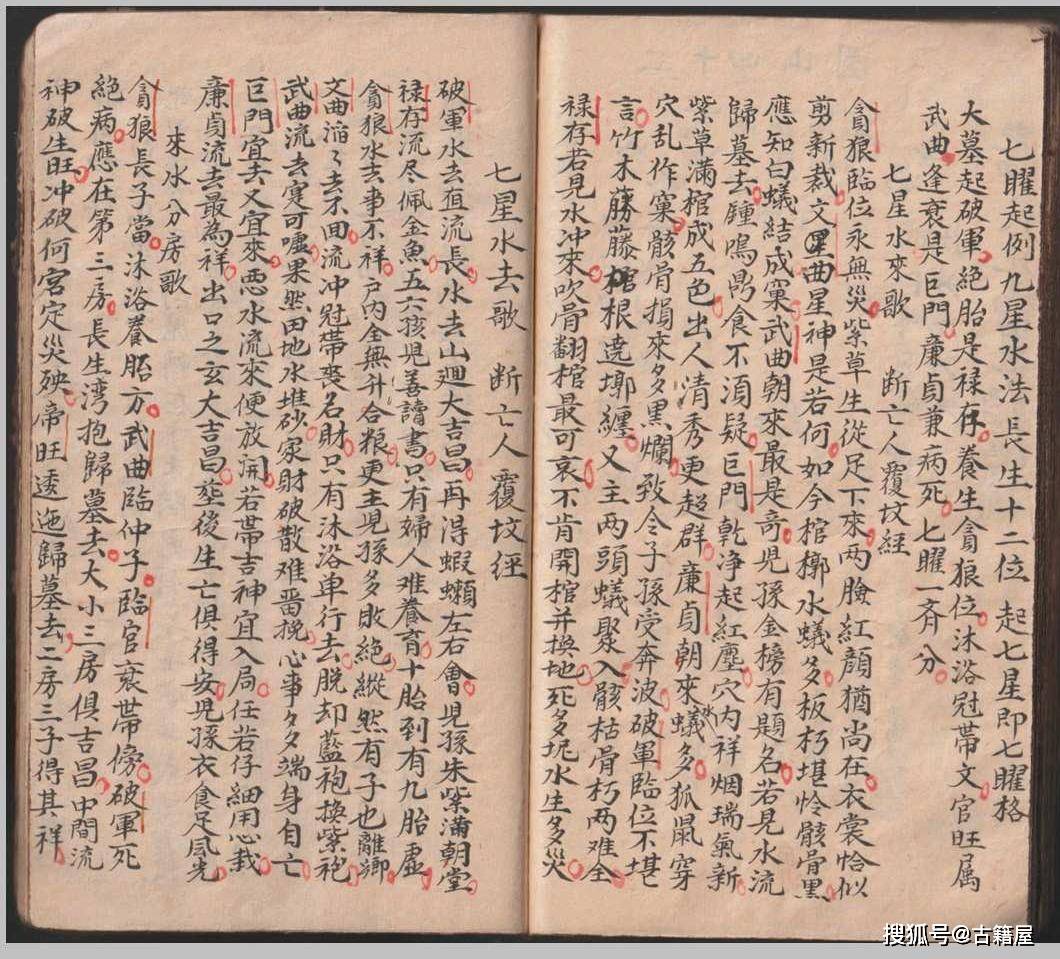 七曜起例九星水法長生十二位 起七星即七曜格
大墓起破軍絕胎是禄存養生貪狼位沐浴冠帶文官旺属
武曲逢衰是巨門廉貞兼病死七曜一齊分
七星水來歌 断亡人覆坟經
貪狼臨位永無災紫草生從足下來兩臉紅顔猶尚在衣裳恰似
剪新裁文曲星神是若何如今棺槨水蟻多板朽堪怜骸骨黑
應知白蟻結成窠武曲朝來最是奇児孫金榜有題名若見水流
歸墓去鍾鳴鼎食不須疑巨門乾净起紅塵穴内祥烟瑞氣新
紫草滿棺成五色出人清秀更超群廉貞朝來水蟻多狐鼠穿
穴乱作窠骸骨損來多黑爛致令子孫受奔波破軍臨位不堪
言竹木藤根遶墎纏又主两頭蟻聚入骸枯骨朽两难全
禄存若見水冲來吹骨翻棺最可哀不肯開棺并換地死多坭水生多災
七星水去歌 断亡人覆坟經
破軍水去直流長水去山廻大吉昌再得蝦蠏左右會児孫朱紫满朝堂
禄存流尽佩金魚五六孩児善讀書只有婦人难養育十胎到有九胎虚
貪狼水去事不祥户内全無升合粮更主児孫多敗絶縱然有子也離鄉
文曲滔々去不回流冲冠帶喪名財只有沐浴单行去脱却藍袍換紫袍
武曲流去寔可嘘果然田地水堆砂家財破散难畱挽心事夕夕端身自亡
巨門宜去又宜來悪水流來便放開若帶吉神宜入局任若仔細用心裁
廉貞流去最為祥出口之玄大吉昌塟後生亡俱得安児孫衣食足風光
來水分房歌
貪狼長子當沐浴養胎方武曲臨仲子臨官衰帶傍破軍死
絕病應在第三房長生湾抱歸墓去大小三房俱吉昌中間流
神破生旺冲破何宫定災殃帝旺逶迤歸墓去二房三子得其祥
搜狐号@古籍屋